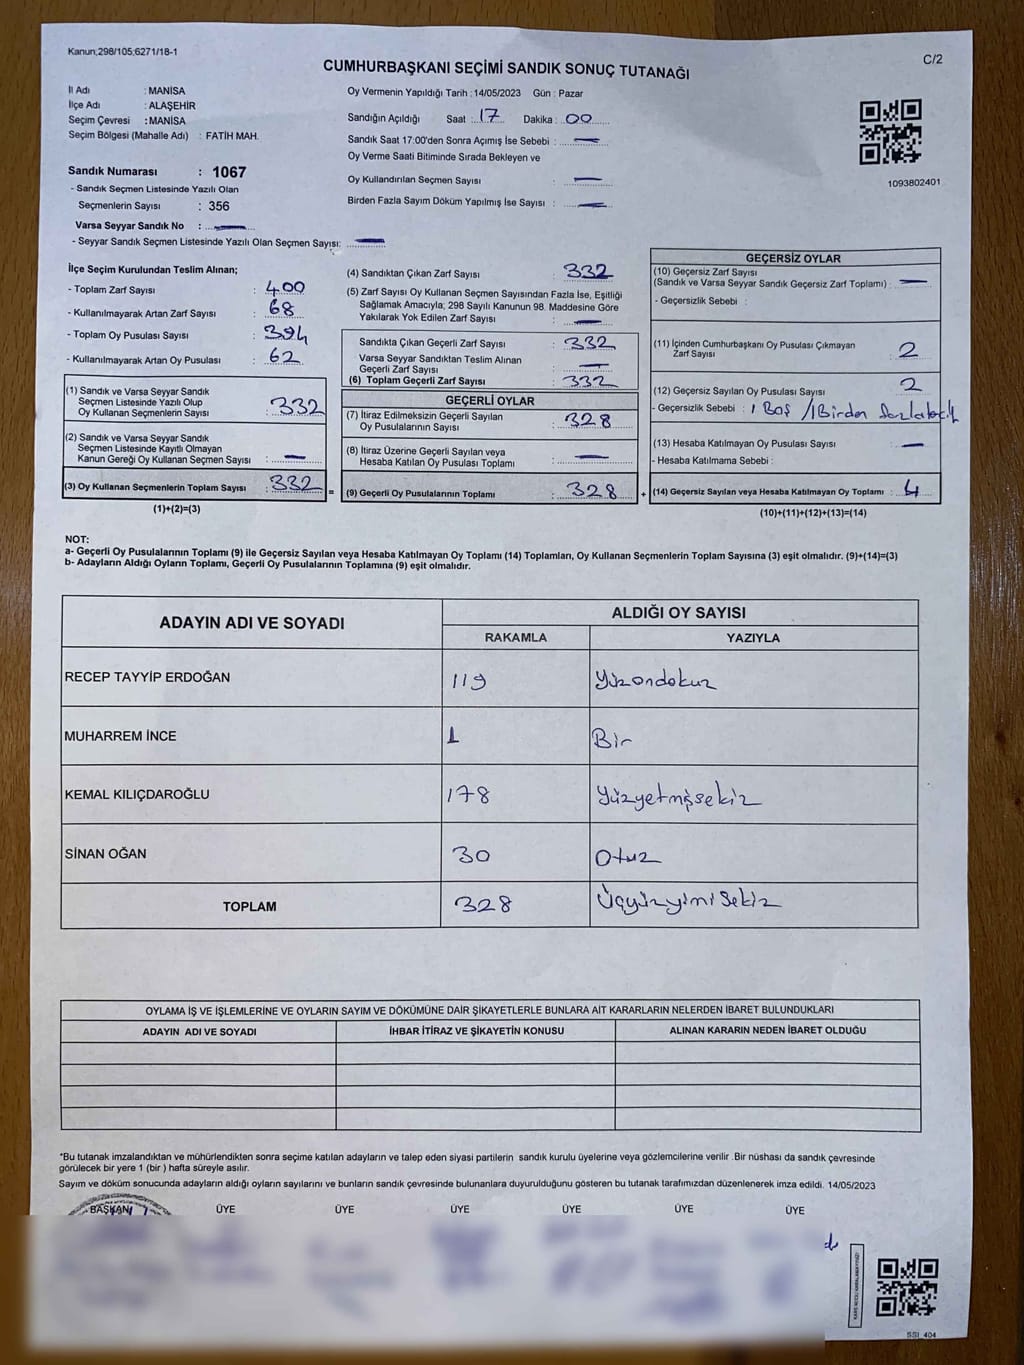 Kanun;298/105;6271/18-1
C/2
CUMHURBAŞKANI SEÇİMİ SANDIK SONUÇ TUTANAĞI
İl Adı : MANİSA
İlçe Adı : ALAŞEHİR
Seçim Çevresi : MANİSA
Seçim Bölgesi (Mahalle Adı) : FATİH MAH.
Sandık Numarası : 1067
- Sandık Seçmen Listesinde Yazılı Olan
Seçmenlerin Sayısı : 356
Varsa Seyyar Sandık No : —
- Seyyar Sandık Seçmen Listesinde Yazılı Olan Seçmen Sayısı: —
Oy Vermenin Yapıldığı Tarih : 14/05/2023 Gün : Pazar
Sandığın Açıldığı Saat : 17 Dakika : 00
Sandık Saat 17:00'den Sonra Açımış İse Sebebi : —
Oy Verme Saati Bitiminde Sırada Bekleyen ve
Oy Kullandırılan Seçmen Sayısı : —
Birden Fazla Sayım Döküm Yapılmış İse Sayısı : —
1093802401
İlçe Seçim Kurulundan Teslim Alınan;
- Toplam Zarf Sayısı : 400
- Kullanılmayarak Artan Zarf Sayısı : 68
- Toplam Oy Pusulası Sayısı : 394
- Kullanılmayarak Artan Oy Pusulası : 62
(1) Sandık ve Varsa Seyyar Sandık
Seçmen Listesinde Yazılı Olup
Oy Kullanan Seçmenlerin Sayısı : 332
(2) Sandık ve Varsa Seyyar Sandık
Seçmen Listesinde Kayıtlı Olmayan
Kanun Gereği Oy Kullanan Seçmen Sayısı : —
(3) Oy Kullanan Seçmenlerin Toplam Sayısı : 332 =
(1)+(2)=(3)
(4) Sandıktan Çıkan Zarf Sayısı : 332
(5) Zarf Sayısı Oy Kullanan Seçmen Sayısından Fazla İse, Eşitliği
Sağlamak Amacıyla; 298 Sayılı Kanunun 98. Maddesine Göre
Yakılarak Yok Edilen Zarf Sayısı : —
Sandıkta Çıkan Geçerli Zarf Sayısı : 332
Varsa Seyyar Sandıktan Teslim Alınan
Geçerli Zarf Sayısı : —
(6) Toplam Geçerli Zarf Sayısı : 332
GEÇERLİ OYLAR
(7) İtiraz Edilmeksizin Geçerli Sayılan
Oy Pusulalarının Sayısı : 328
(8) İtiraz Üzerine Geçerli Sayılan veya
Hesaba Katılan Oy Pusulası Toplamı : —
(9) Geçerli Oy Pusulalarının Toplamı : 328 +
GEÇERSİZ OYLAR
(10) Geçersiz Zarf Sayısı
(Sandık ve Varsa Seyyar Sandık Geçersiz Zarf Toplamı) : —
- Geçersizlik Sebebi :
(11) İçinden Cumhurbaşkanı Oy Pusulası Çıkmayan
Zarf Sayısı : 2
(12) Geçersiz Sayılan Oy Pusulası Sayısı : 2
- Geçersizlik Sebebi : 1 Boş / 1 Birden
(13) Hesaba Katılmayan Oy Pusulası Sayısı : —
- Hesaba Katılmama Sebebi :
(14) Geçersiz Sayılan veya Hesaba Katılmayan Oy Toplamı : 4
(10)+(11)+(12)+(13)=(14)
NOT:
a- Geçerli Oy Pusulalarının Toplamı (9) ile Geçersiz Sayılan veya Hesaba Katılmayan Oy Toplamı (14) Toplamları, Oy Kullanan Seçmenlerin Toplam Sayısına (3) eşit olmalıdır. (9)+(14)=(3)
b- Adayların Aldığı Oyların Toplamı, Geçerli Oy Pusulalarının Toplamına (9) eşit olmalıdır.
ADAYIN ADI VE SOYADI ALDIĞI OY SAYISI
RAKAMLA YAZIYLA
RECEP TAYYİP ERDOĞAN 119 Yüzondokuz
MUHARREM İNCE 1 Bir
KEMAL KILIÇDAROĞLU 178 Yüzyetmişsekiz
SİNAN OĞAN 30 Otuz
TOPLAM 328 Üçyüzyimi Sekiz
OYLAMA İŞ VE İŞLEMLERİNE VE OYLARIN SAYIM VE DÖKÜMÜNE DAİR ŞİKAYETLERLE BUNLARA AİT KARARLARIN NELERDEN İBARET BULUNDUKLARI
ADAYIN ADI VE SOYADI İHBAR İTİRAZ VE ŞİKAYETİN KONUSU ALINAN KARARIN NEDEN İBARET OLDUĞU
*Bu tutanak imzalandıktan ve mühürlendikten sonra seçime katılan adayların ve talep eden siyasi partilerin sandık kurulu üyelerine veya gözlemcilerine verilir .Bir nüshası da sandık çevresinde
görülecek bir yere 1 (bir ) hafta süreyle asılır.
Sayım ve döküm sonucunda adayların aldığı oyların sayılarını ve bunların sandık çevresinde bulunanlara duyurulduğunu gösteren bu tutanak tarafımızdan düzenlenerek imza edildi. 14/05/2023
BAŞKAN ÜYE ÜYE ÜYE ÜYE ÜYE ÜYE
SSI_404